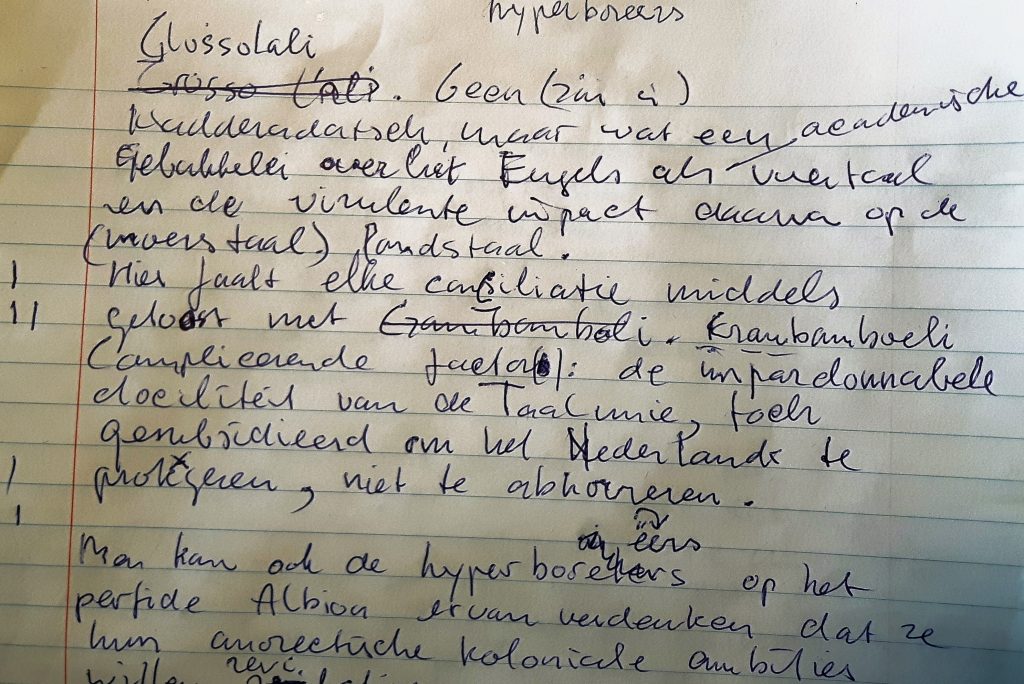 hyperboreers
Glossolali
Geen (zin in)
Kadderadatsch, maar wat een academische
gebakkelei over het Engels als voertaal
en de virulente impact daarvan op de
(moerstaal) landstaal.
Hier faalt elke consiliatie middels
geloost met Crambamboli. Krambamboeli
Complicerende factor: de impardonnabele
dociliteit van de Taalunie, toch
gesubsidieerd om het Nederlands te
protegeren, niet te abhorreren.
Men kan ook de hyperboreeërs op het
perfide Albion ervan verdenken dat ze
hun anorectische koloniale ambities
willen